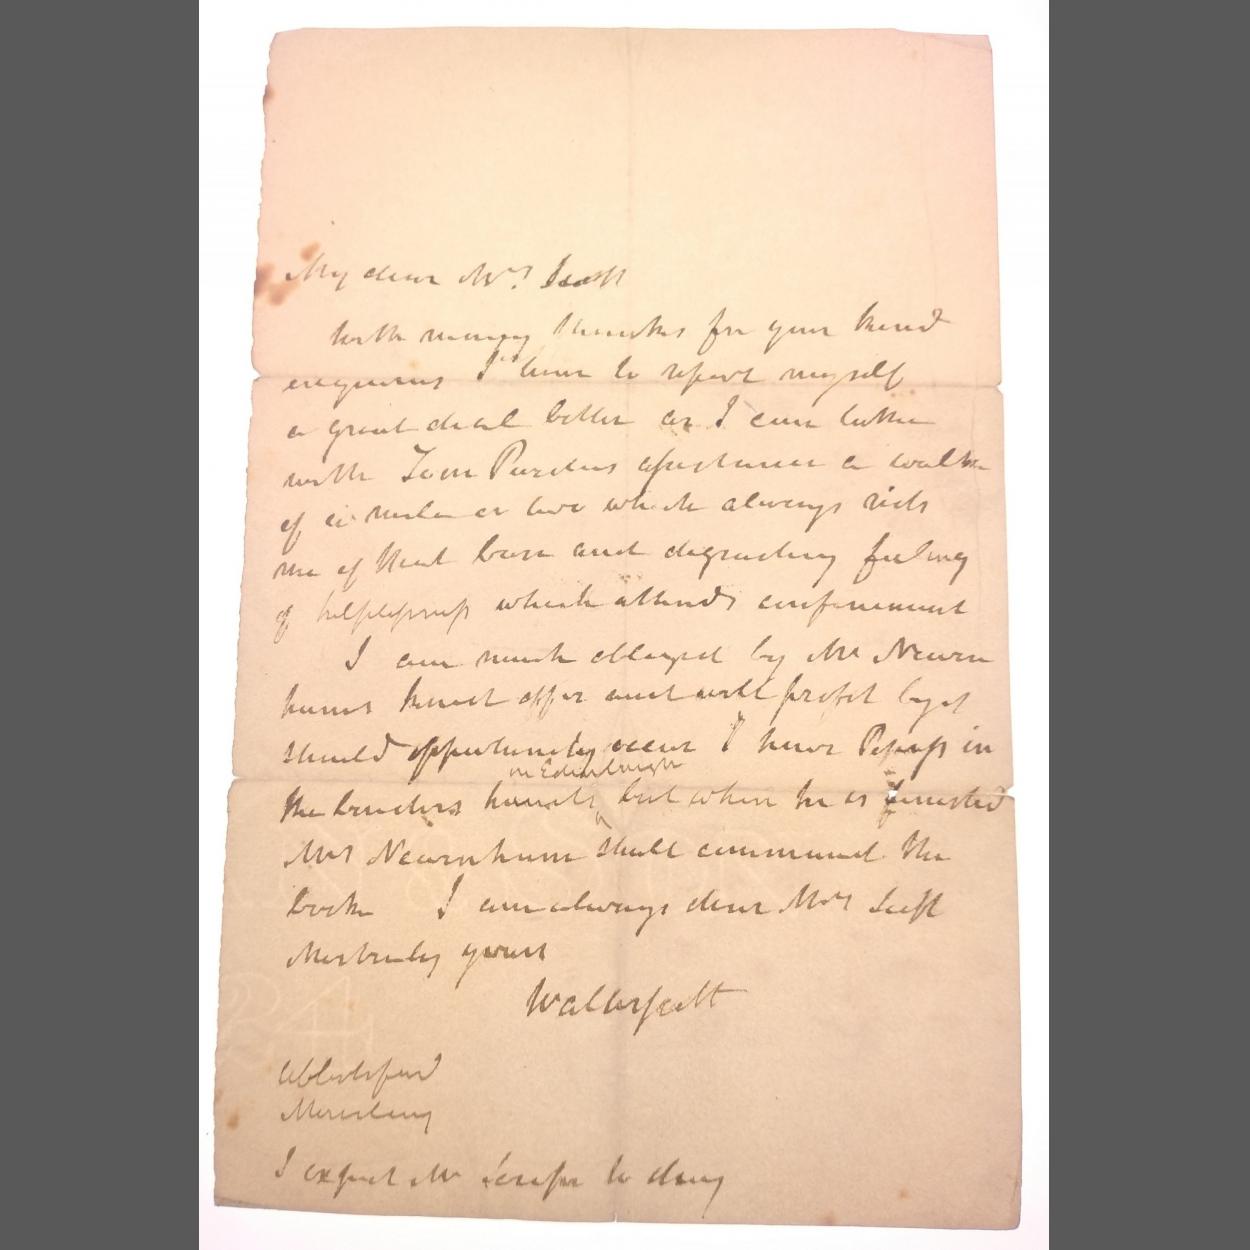 My dear Mrs. Scott
With many thanks for your kind
enquiries I have to report myself
a great deal better as I can take
with Tom Purdies assistance a walk
of a mile or two which always rids
me of that base and degrading feeling
of helplessness which attends confinement
I am much obliged by Mr Newn
hams kind offer and will profit by it
should opportunity occur I have Pepys in
in Edinburgh
the binders hands but when he is finished
Mrs Newnham shall command the
book I am always dear Mrs Scott
Most truly yours
Walter Scott
Abbotsford
Monday
I expect Mr to day